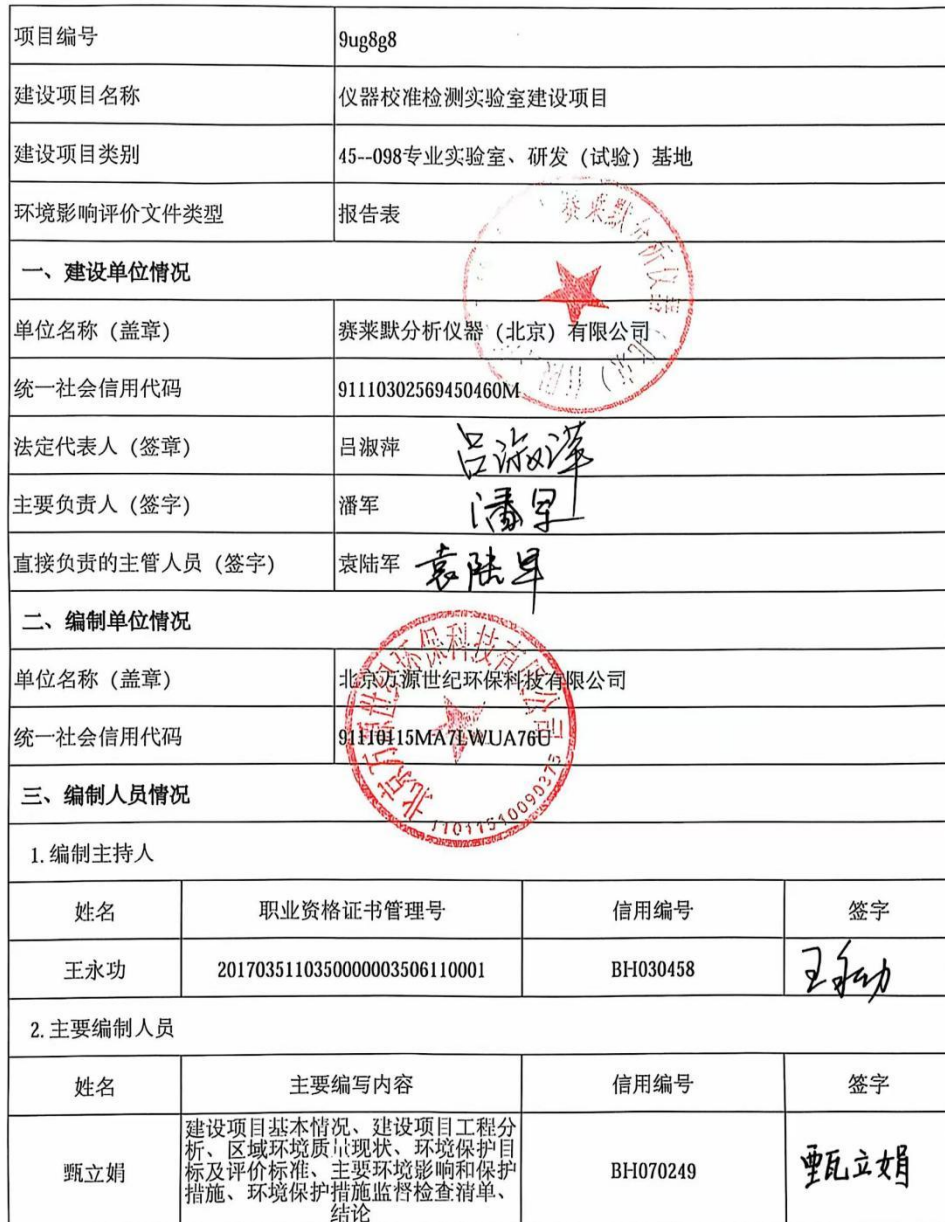 项目编号 9ug8g8
建设项目名称 仪器校准检测实验室建设项目
建设项目类别 45--098专业实验室、研发（试验）基地
环境影响评价文件类型 报告表
一、建设单位情况
单位名称（盖章） 赛莱默分析仪器（北京）有限公司
统一社会信用代码 91110302569450460M
法定代表人（签章） 吕淑萍 吕淑萍
主要负责人（签字） 潘军 潘军
直接负责的主管人员（签字） 袁陆军 袁陆军
二、编制单位情况
单位名称（盖章） 北京万源世纪环保科技有限公司
统一社会信用代码 91110115MA7LWUA76U
三、编制人员情况
1.编制主持人
姓名 职业资格证书管理号 信用编号 签字
王永功 20170351103500000003506110001 BH030458 王永功
2.主要编制人员
姓名 主要编写内容 信用编号 签字
建设项目基本情况、建设项目工程分
析、区域环境质量现状、环境保护目
甄立娟 标及评价标准、主要环境影响和保护 BH070249 甄立娟
措施、环境保护措施监督检查清单、
结论
赛莱默分析仪器（北京）有限公司
北京万源世纪环保科技有限公司
11011510090375